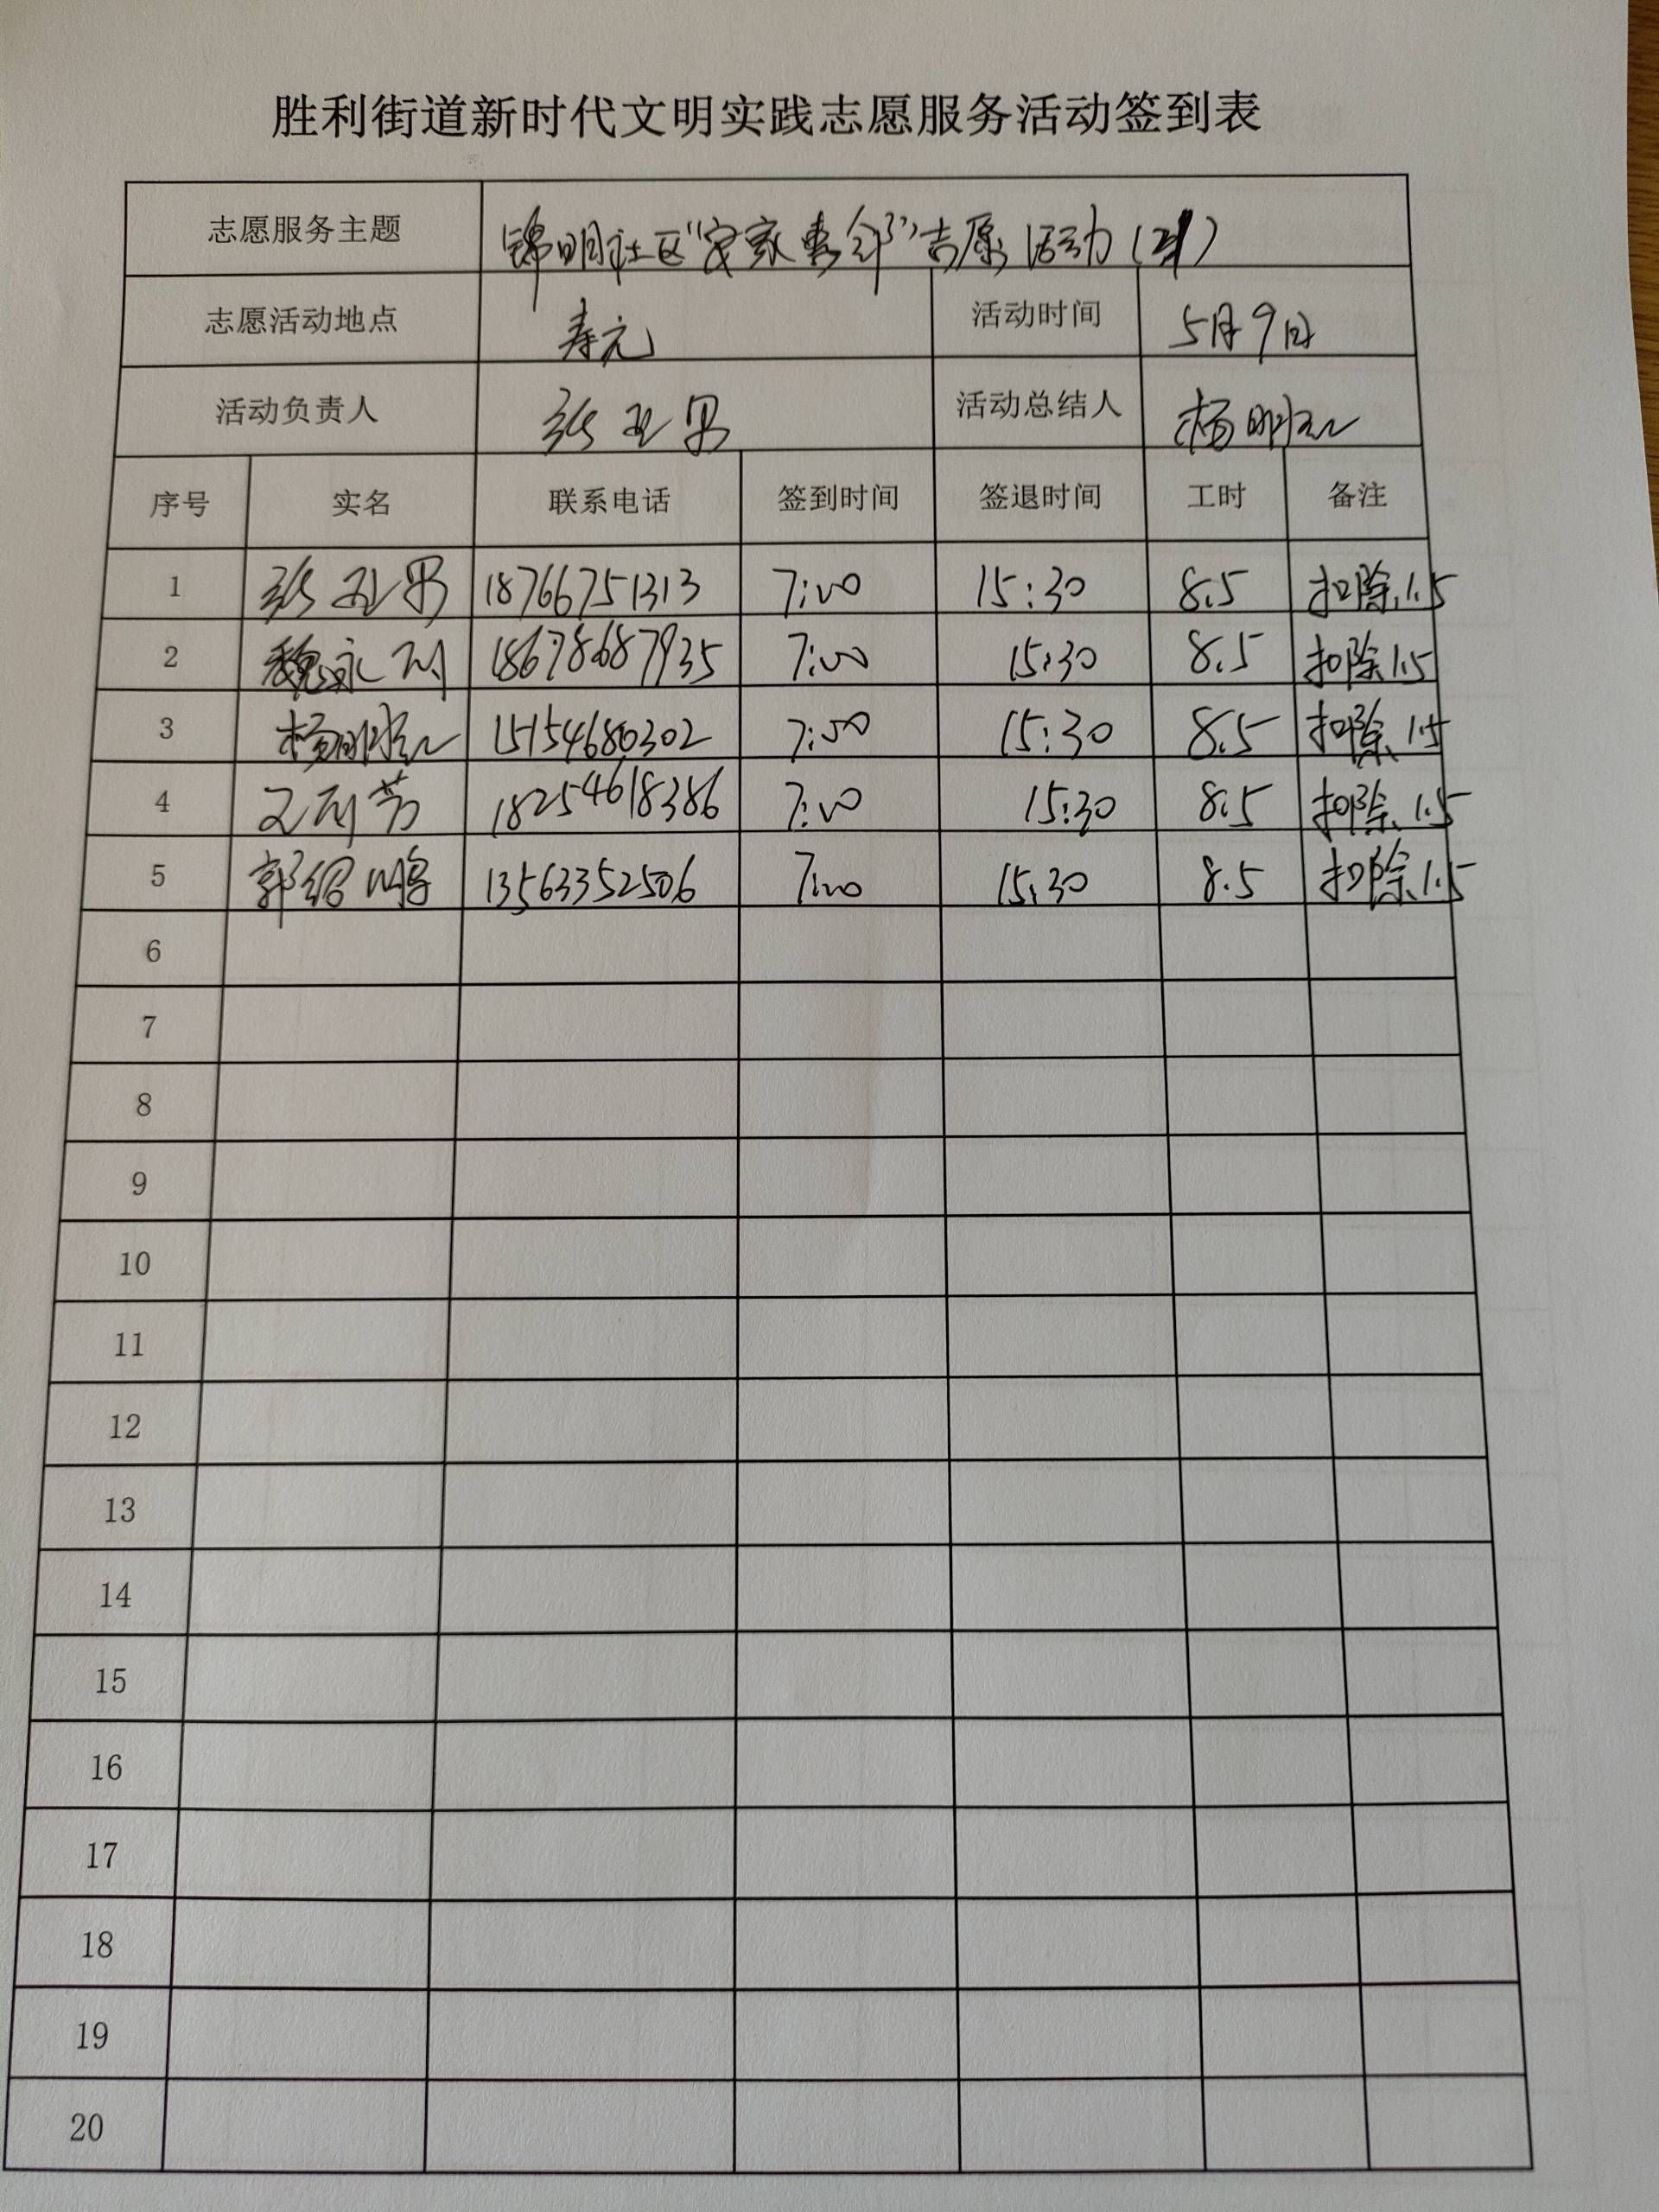 胜利街道新时代文明实践志愿服务活动签到表
志愿服务主题 锦明社区“安家惠邻”志愿活动
志愿活动地点 寿元 活动时间 5月9日
活动负责人 张亚男 活动总结人 杨明
序号 实名 联系电话 签到时间 签退时间 工时 备注
1 张亚男 18766751313 7:00 15:30 8.5 扣除1.5
2 魏永刚 18678687935 7:00 15:30 8.5 扣除1.5
3 杨明 15154680302 7:00 15:30 8.5 扣除1.5
4 芳 18254618386 7:00 15:30 8.5 扣除1.5
5 郭绍鹏 13563352506 7:00 15:30 8.5 扣除1.5
6
7
8
9
10
11
12
13
14
15
16
17
18
19
20